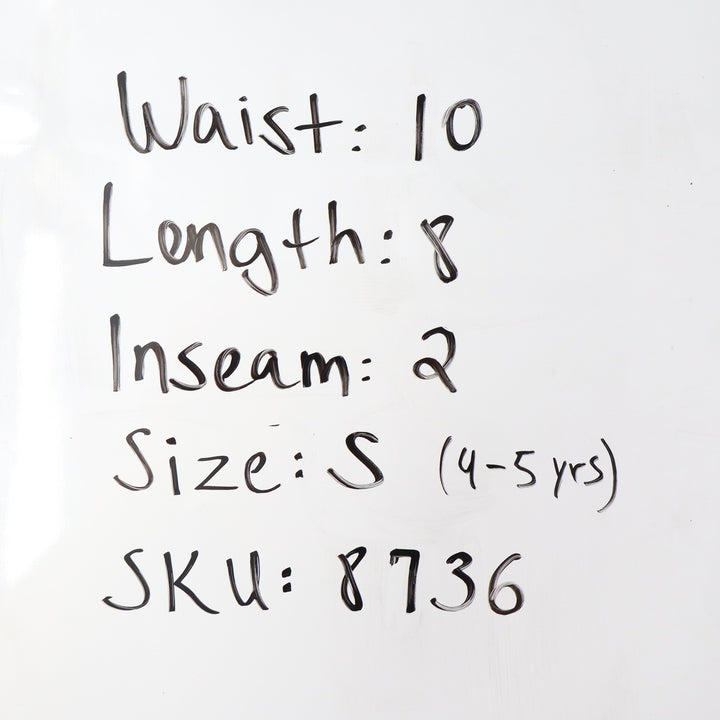 Waist: 10
Length: 8
Inseam: 2
Size: S (4-5 yrs)
SKU: 8736